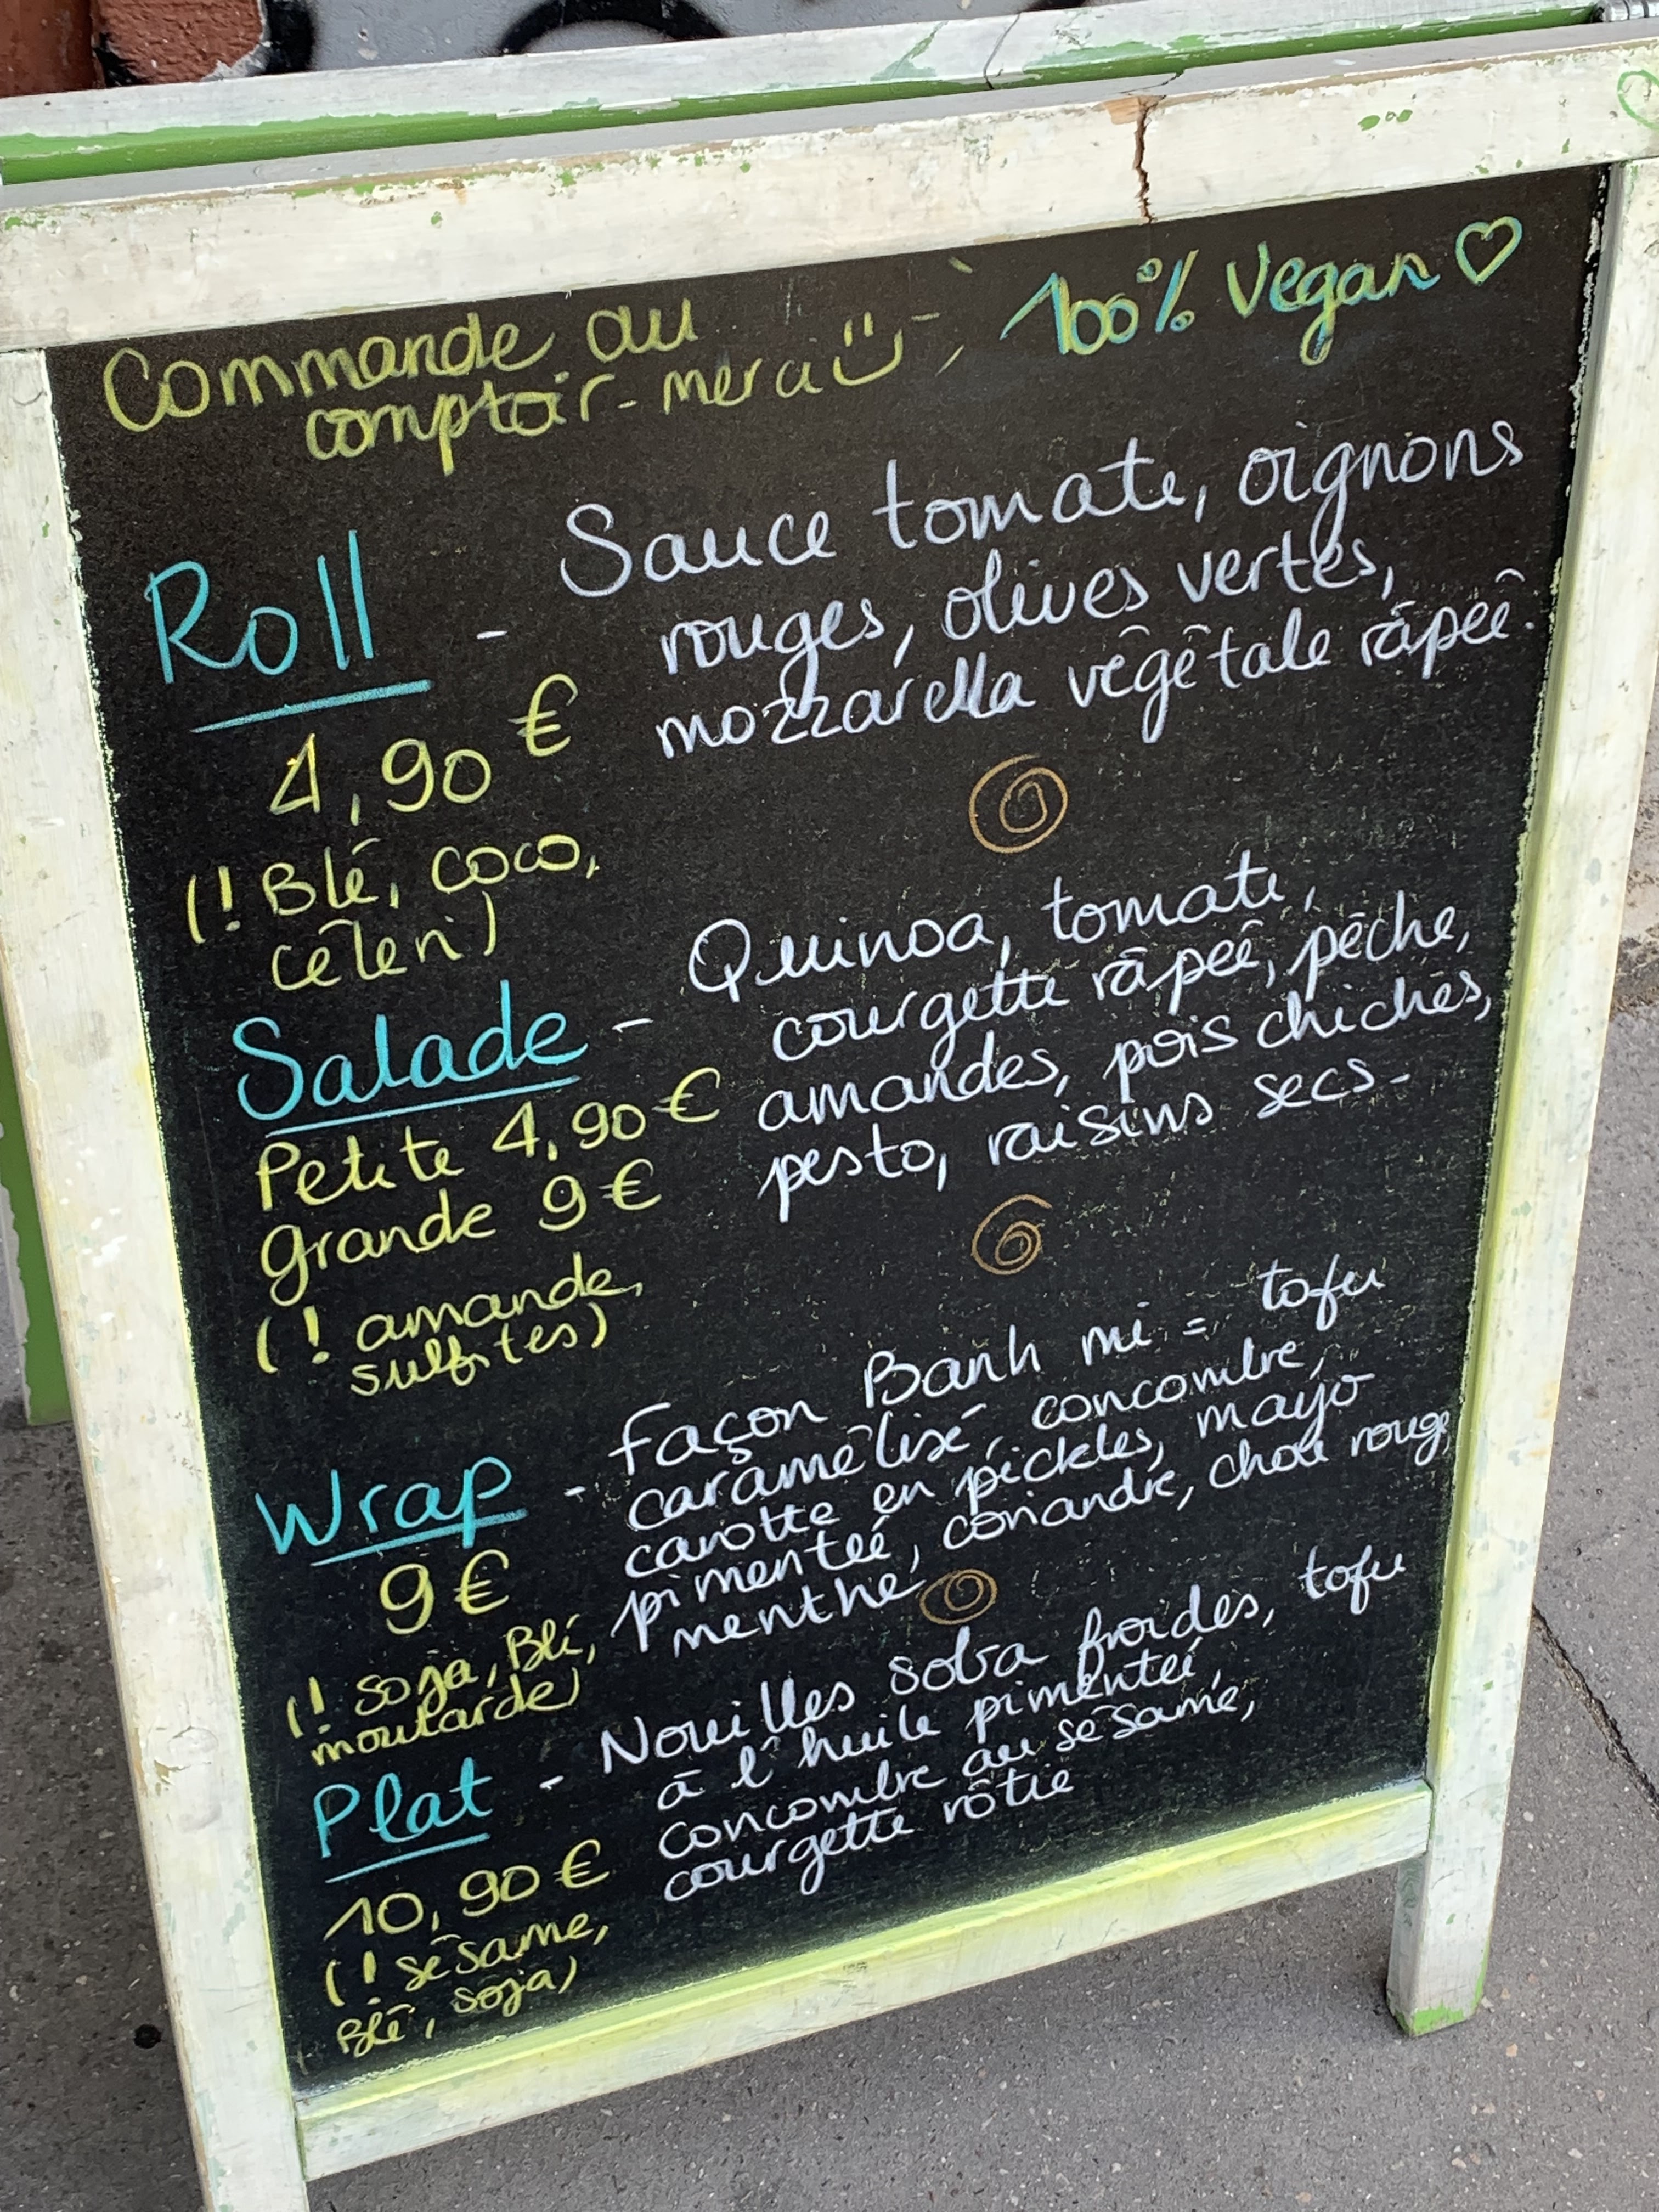 Commande au
comptoir - merci
100% Vegan
Roll - Sauce tomate, oignons
rouges, olives vertes,
mozzarella végétale râpée.
4,90 €
(! Blé, coco,
céleri)
Salade - Quinoa, tomate,
courgette râpée, pêche,
amandes, pois chiches,
pesto, raisins secs -
Petite 4,90 €
grande 9 €
(! amande,
sulfites)
Wrap - Façon Banh mi = tofu
caramélisé, concombre,
carotte en pickles, mayo
pimentée, coriandre, chou rouge,
menthe
9 €
(! soja, Blé,
moutarde)
Plat - Nouilles soba froides, tofu
à l'huile pimentée,
concombre au sésame,
courgette rôtie
10,90 €
(! sésame,
Blé, soja)